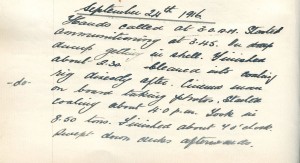 September 24th 1916.
Hands called at 3.0 a.m. Started
ammunitioning at 3.45. In deep
getting in shell. Finished
about 8.30 cleaned into coaling
rig directly after. Cinema man
-do- on board taking photos. Started
coaling about 4.0 p.m. Took in
850 tons. Finished about 9 o'clock.
Swept down decks afterwards.